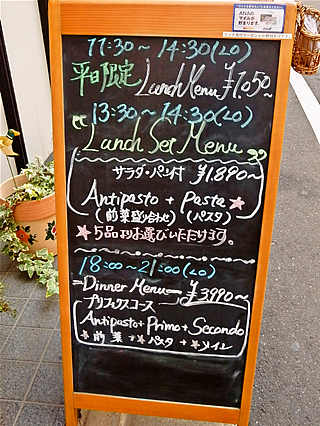 ANAの
マイルが
貯まります。
11:30~14:30(LO)
平日限定 Lunch Menu ¥1,050~
13:30~14:30(LO)
"Lunch Set Menu"
サラダ・パン付 ¥1,890~
Antipasto + Pasta ★
(前菜盛り合わせ) (パスタ)
★5品よりお選びいただけます。
18:00~21:00(LO)
=Dinner Menu— ¥3,990~
プリフィックスコース
Antipasto+Primo+Secondo
★前菜 +★パスタ +★メイン